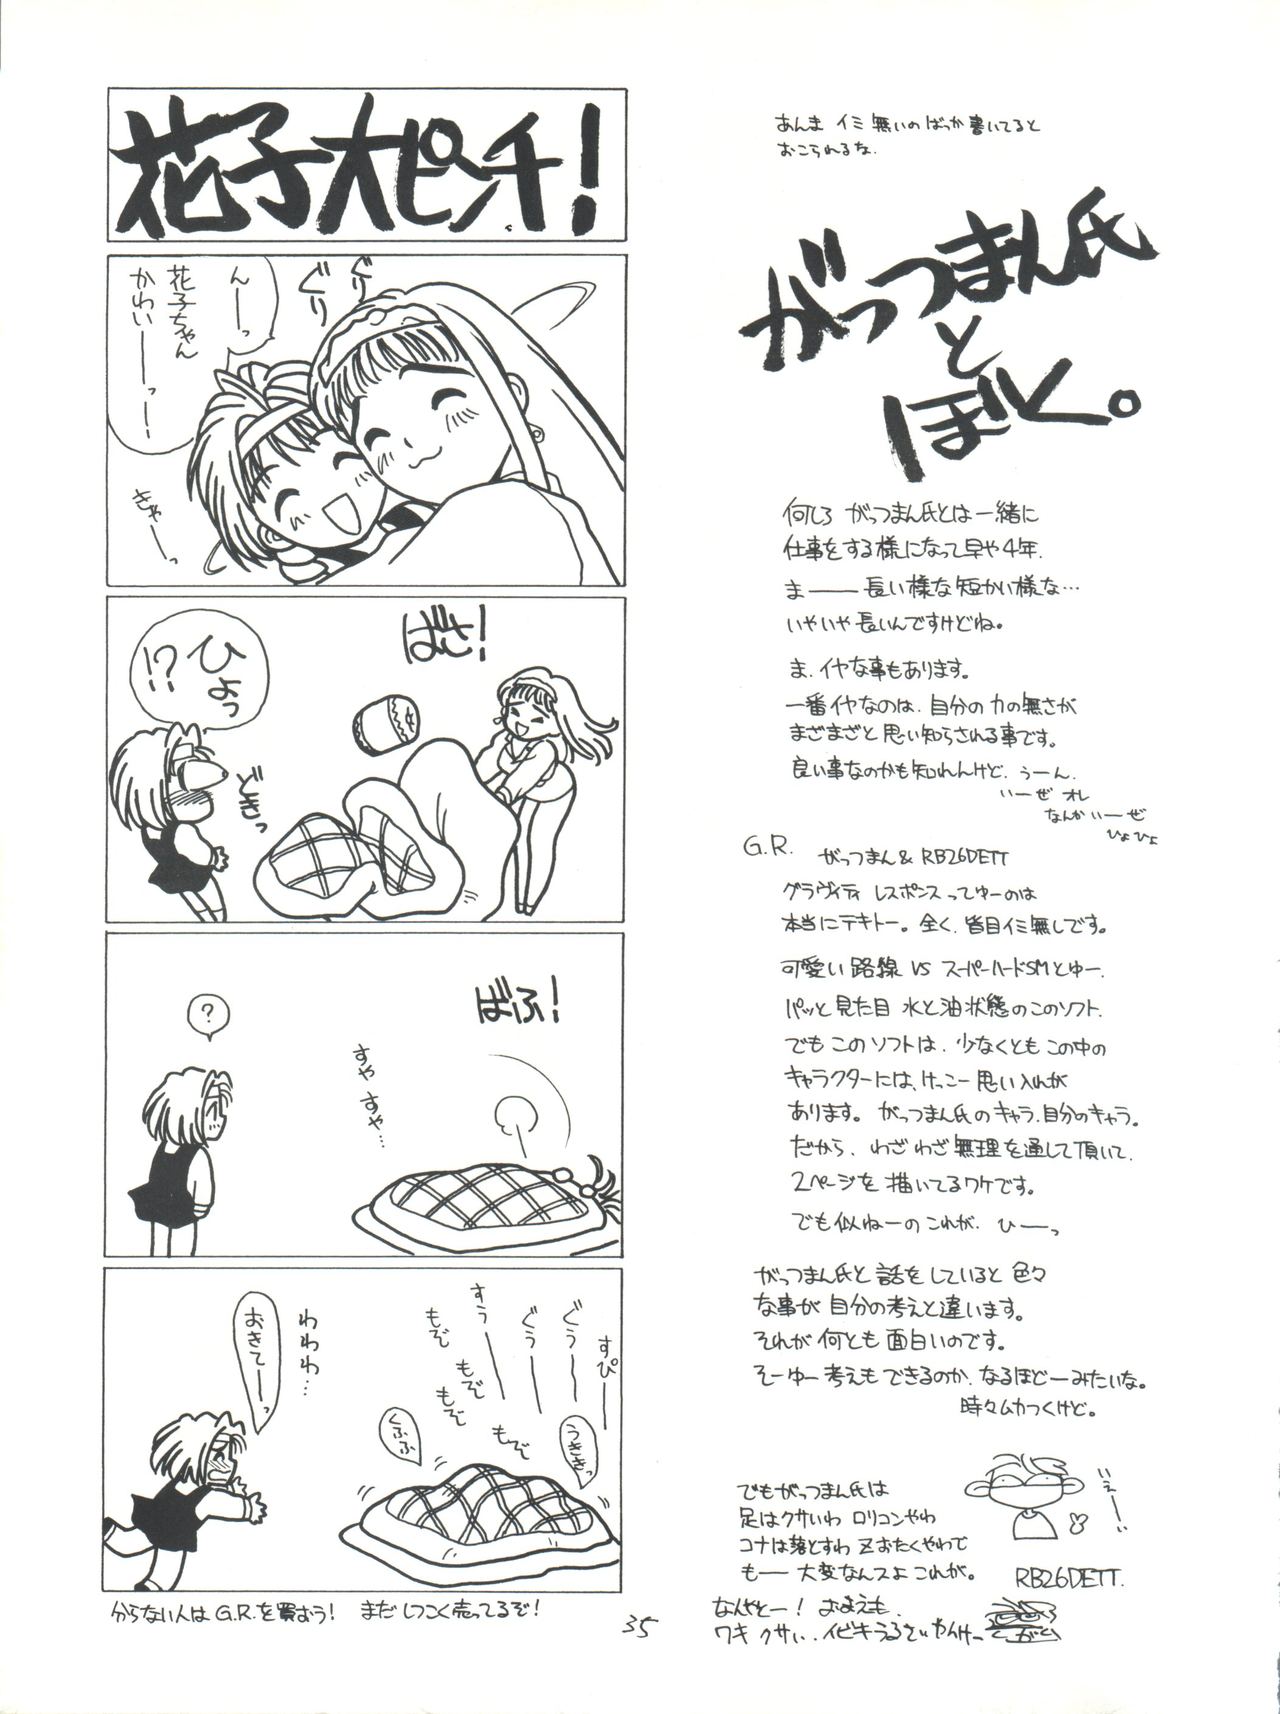 花子大ピンチ!
んーっ
花子ちゃん
かわいーっー
ぐりぐり
きゃーっ
ばさ!
ひょっ
!?
どきっ
ばふ!
?
すや すや…
すぴー
ぐぅー
ぐぅー
すぅー
もぞ
もぞ
もぞ
もぞ
うききっ
くふふ
わわわ…
おきてーっ
分からない人は G.R.を買おう! まだしつこく売ってるぞ!
35
あんま イミ 無いのばっか書いてると
おこられるな.
がっつまん氏
と
ぼく。
何しろ がっつまん氏とは一緒に
仕事をする様になって早や4年.
ま――長い様な短かい様な…
いやいや長いんですけどね。
ま.イヤな事もあります。
一番イヤなのは、自分の力の無さが
まざまざと思い知らされる事です。
良い事なのかも知れんけど. うーん.
いーぜ オレ
なんか いーぜ
ひょひょ
G.R. がっつまん& RB26DETT
グラヴィティ レスポンスってゆーのは
本当にテキトー。全く、皆目イミ無しです。
可愛い路線 VS スーパーハードSMとゆー.
パッと見た目 水と油状態のこのソフト.
でも このソフトは、少なくとも この中の
キャラクターには、けっこー思い入れが
あります。 がっつまん氏のキャラ、自分のキャラ。
だから、わざわざ無理を通して頂いて、
2ページを描いてるワケです。
でも似ねーの これが. ひーっ
がっつまん氏と 話をしていると 色々
な事が 自分の考えと違います。
それが 何とも 面白いのです。
そーゆー考えも できるのか、なるほどーみたいな。
時々ムカつくけど。
でもがっつまん氏は
足はクサいわ ロリコンやわ
コナは落とすわ Zおたくやわで
もー 大変なんスよ これが。
いぇーい
RB26DETT.
なんやとー! おまえも.
ワキ クサい、イビキうるさいやんけー